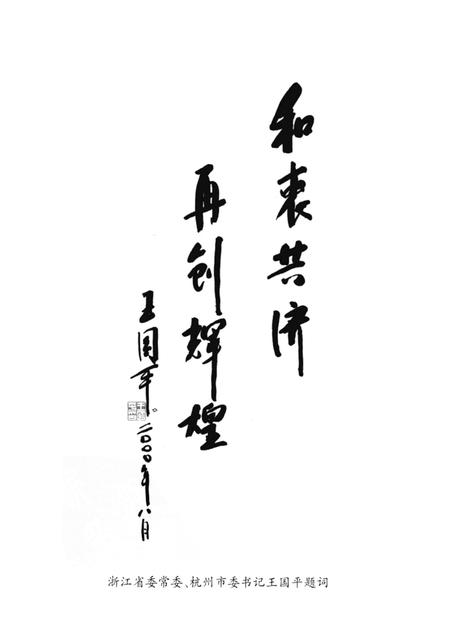 和衷共济
再创辉煌
王国平
二〇〇〇年八月
浙江省委常委、杭州市委书记王国平题词